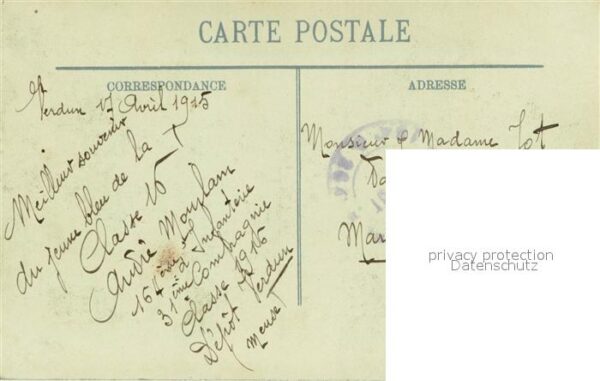 CARTE POSTALE
CORRESPONDANCE
ADRESSE
Verdun 17 Avril 1915
Meilleur souvenir
du jeune bleu de la
Classe 16
André
164ème d'Infanterie
31ème Compagnie
Classe 1916
Dépôt Verdun
Meuse
Monsieur & Madame
Mar
privacy protection
Datenschutz